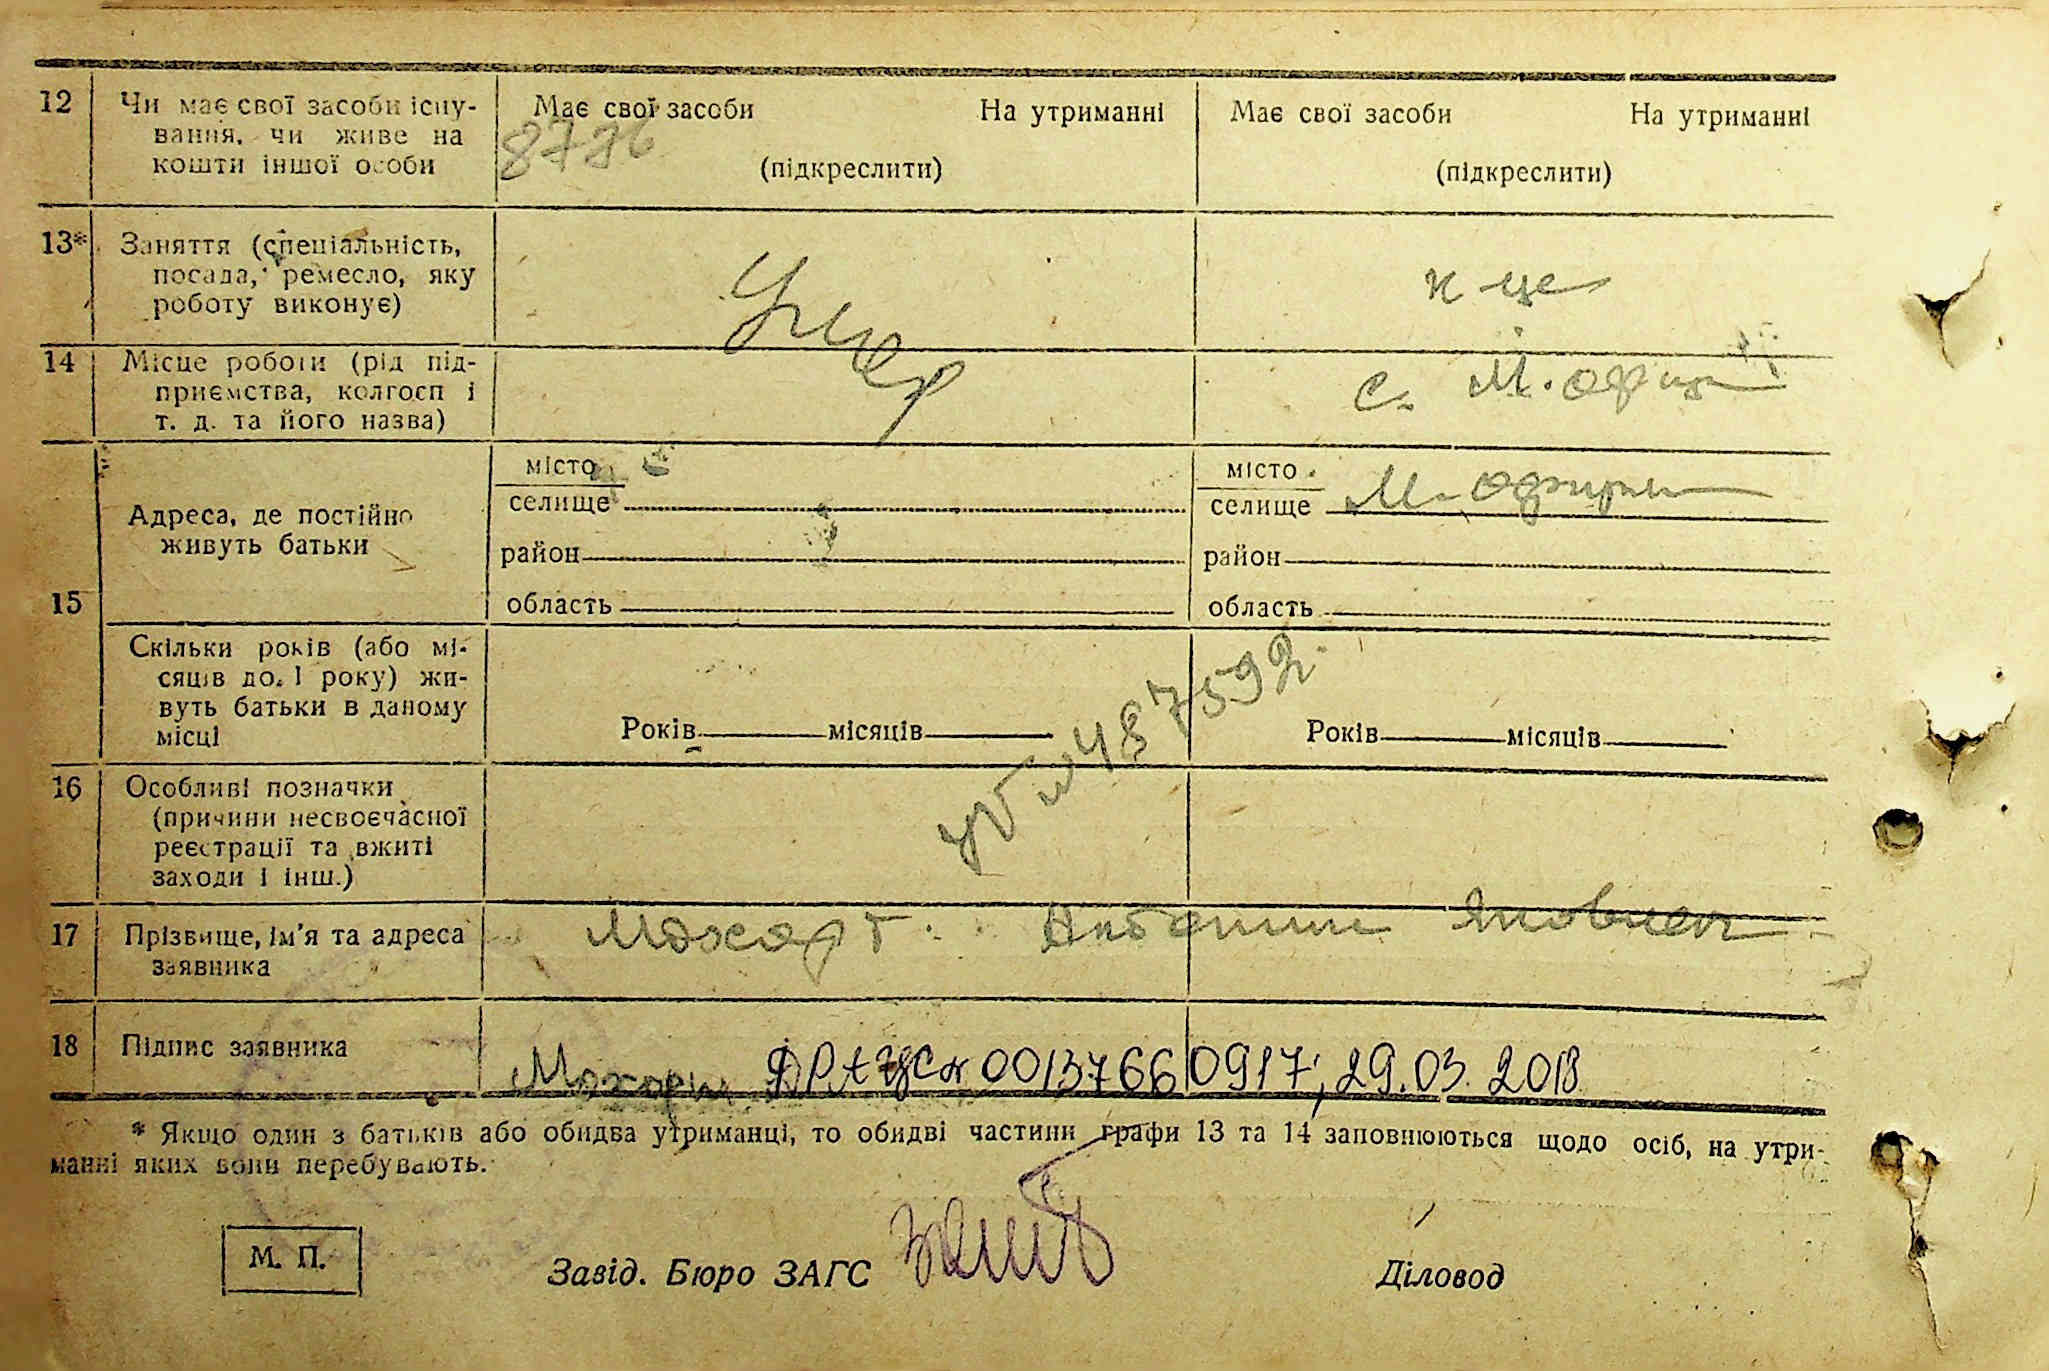 12 Чи має свої засоби існу-
вання, чи живе на
кошти іншої особи
Має свої засоби На утриманні
8776
(підкреслити)
Має свої засоби На утриманні
(підкреслити)
13* Заняття (спеціальність,
посада, ремесло, яку
роботу виконує)
Умер
к-це
14 Місце роботи (рід під-
приємства, колгосп і
т. д. та його назва)
с. М.
15 Адреса, де постійно
живуть батьки
місто
селище
район
область
місто
селище М-
район
область
Скільки років (або мі-
сяців до 1 року) жи-
вуть батьки в даному
місці
Років місяців
Років місяців
487592
16 Особливі позначки
(причини несвоєчасної
реєстрації та вжиті
заходи і інш.)
17 Прізвище, ім'я та адреса
заявника
Мохорт
18 Підпис заявника
Мохорт ДРАЦСк 00137660917, 29.03.2018
* Якщо один з батьків або обидва утриманці, то обидві частини графи 13 та 14 заповнюються щодо осіб, на утри-
манні яких вони перебувають.
М. П.
Завід. Бюро ЗАГС
Діловод